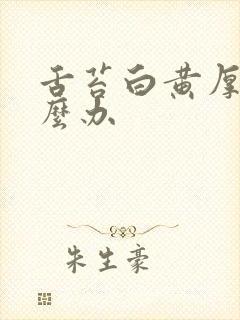 舌苔白黄厚
麼办
朱生豪